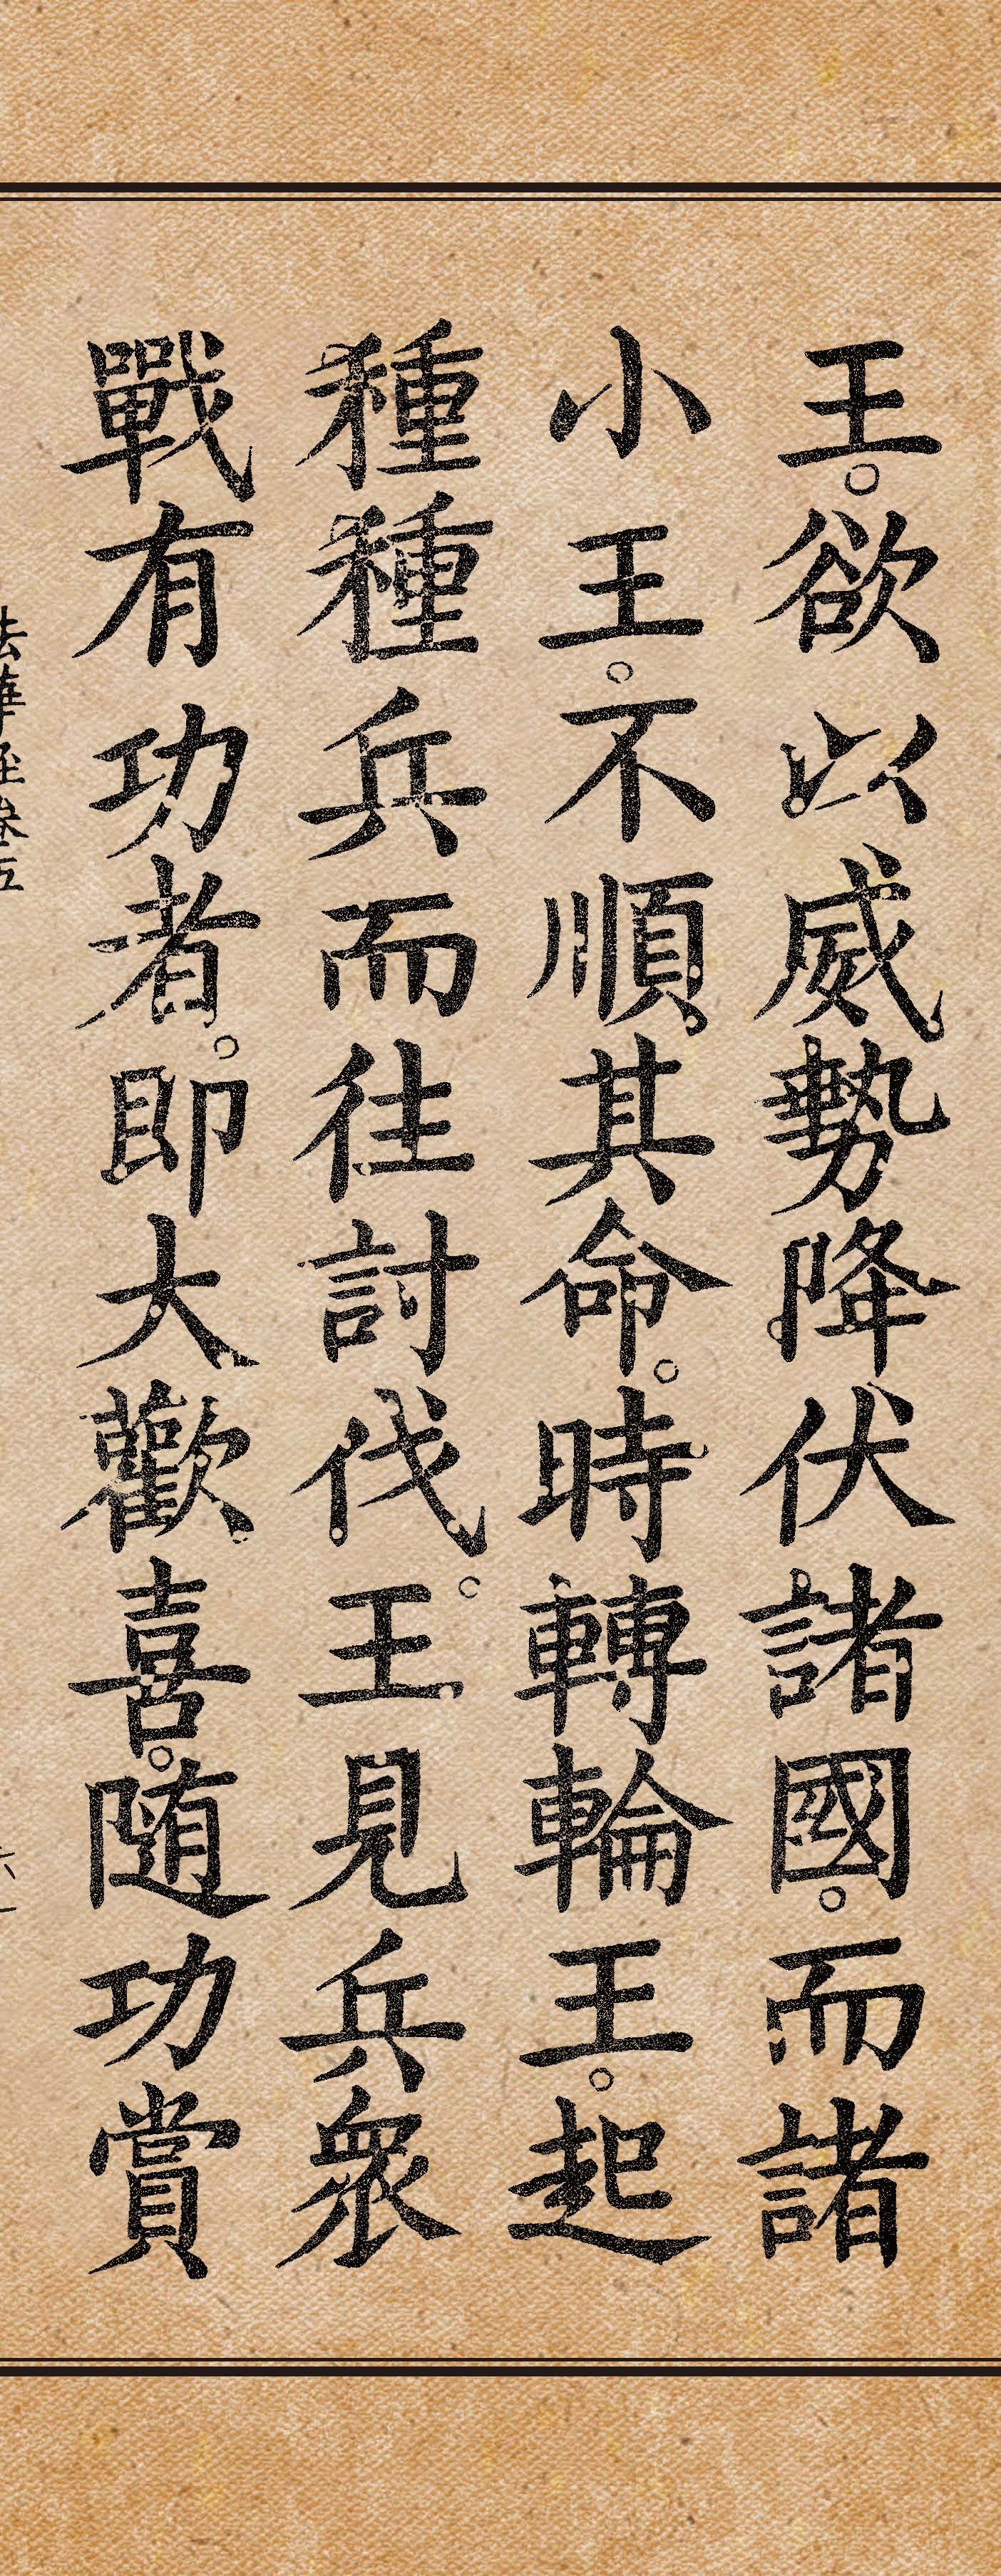 王。欲以威勢降伏諸國。而諸
小王。不順其命。時轉輪王。起
種種兵而往討伐。王見兵衆
戰有功者。即大歡喜。随功賞
法華経巻五